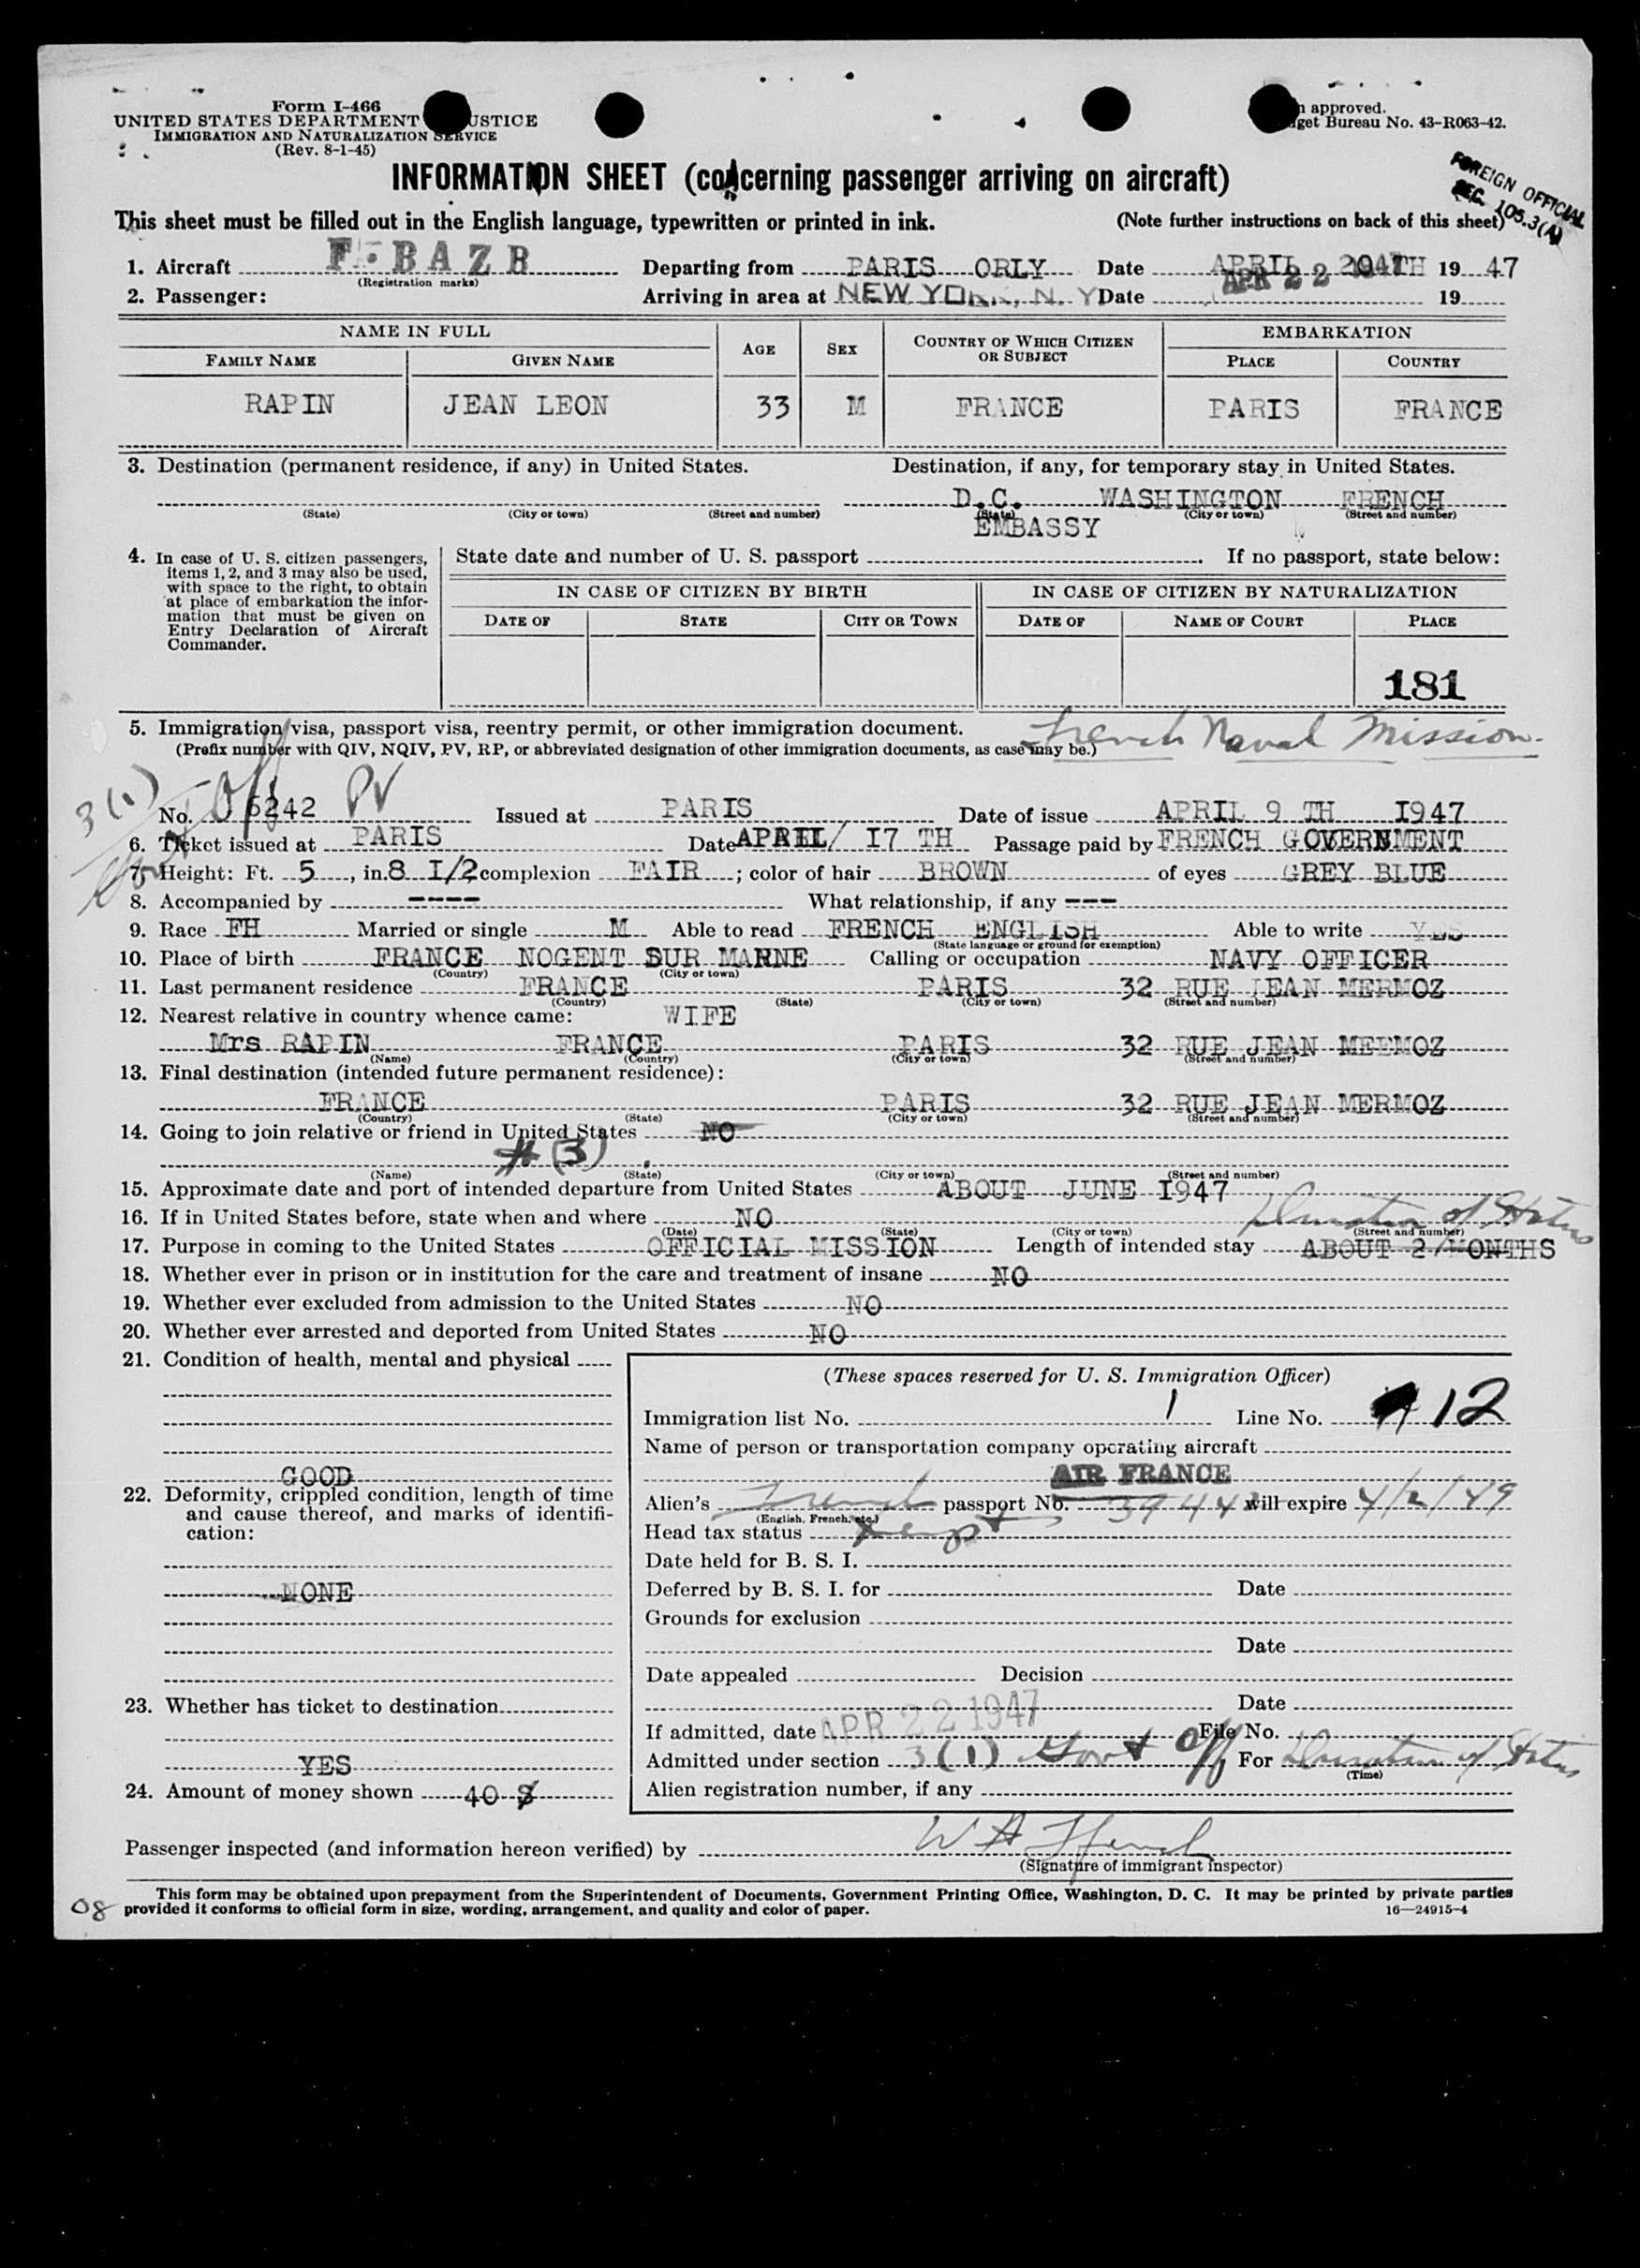 Form I-466
UNITED STATES DEPARTMENT USTICE
IMMIGRATION AND NATURALIZATION SERVICE
(Rev. 8-1-45)
approved.
get Bureau No. 43-R063-42.
INFORMATION SHEET (concerning passenger arriving on aircraft)
FOREIGN OFFICIAL
SEC. 105.3(A)
This sheet must be filled out in the English language, typewritten or printed in ink. (Note further instructions on back of this sheet)
1. Aircraft F-BAZB Departing from PARIS ORLY Date APRIL 20 TH 1947
(Registration marks)
APR 22 1947
2. Passenger: Arriving in area at NEW YORK, N. Y Date 19
NAME IN FULL AGE SEX COUNTRY OF WHICH CITIZEN OR SUBJECT EMBARKATION
FAMILY NAME GIVEN NAME PLACE COUNTRY
RAPIN JEAN LEON 33 M FRANCE PARIS FRANCE
3. Destination (permanent residence, if any) in United States. Destination, if any, for temporary stay in United States.
D.C. WASHINGTON FRENCH
(State) (City or town) (Street and number) (State) (City or town) (Street and number)
EMBASSY
4. In case of U. S. citizen passengers, items 1, 2, and 3 may also be used, with space to the right, to obtain at place of embarkation the information that must be given on Entry Declaration of Aircraft Commander.
State date and number of U. S. passport If no passport, state below:
IN CASE OF CITIZEN BY BIRTH IN CASE OF CITIZEN BY NATURALIZATION
DATE OF STATE CITY OR TOWN DATE OF NAME OF COURT PLACE
181
5. Immigration visa, passport visa, reentry permit, or other immigration document. French Naval Mission.
(Prefix number with QIV, NQIV, PV, RP, or abbreviated designation of other immigration documents, as case may be.)
3(1) Govt Off
No. 6242 PV Issued at PARIS Date of issue APRIL 9 TH 1947
6. Ticket issued at PARIS Date APRIL/ 17 TH Passage paid by FRENCH GOVERNMENT
7. Height: Ft. 5, in. 8 1/2 complexion FAIR; color of hair BROWN of eyes GREY BLUE
8. Accompanied by ---- What relationship, if any ---
9. Race FH Married or single M Able to read FRENCH ENGLISH Able to write YES
(State language or ground for exemption)
10. Place of birth FRANCE NOGENT SUR MARNE Calling or occupation NAVY OFFICER
(Country) (City or town)
11. Last permanent residence FRANCE PARIS 32 RUE JEAN MERMOZ
(Country) (State) (City or town) (Street and number)
12. Nearest relative in country whence came: WIFE
Mrs RAPIN FRANCE PARIS 32 RUE JEAN MERMOZ
(Name) (Country) (City or town) (Street and number)
13. Final destination (intended future permanent residence):
FRANCE PARIS 32 RUE JEAN MERMOZ
(Country) (State) (City or town) (Street and number)
14. Going to join relative or friend in United States NO
# (3)
(Name) (State) (City or town) (Street and number)
15. Approximate date and port of intended departure from United States ABOUT JUNE 1947
16. If in United States before, state when and where NO Duration of Status
(Date) (State) (City or town) (Street and number)
17. Purpose in coming to the United States OFFICIAL MISSION Length of intended stay ABOUT 2 MONTHS
18. Whether ever in prison or in institution for the care and treatment of insane NO
19. Whether ever excluded from admission to the United States NO
20. Whether ever arrested and deported from United States NO
21. Condition of health, mental and physical
GOOD
22. Deformity, crippled condition, length of time and cause thereof, and marks of identification:
NONE
23. Whether has ticket to destination
YES
24. Amount of money shown 40 $
(These spaces reserved for U. S. Immigration Officer)
Immigration list No. 1 Line No. 12
Name of person or transportation company operating aircraft
AIR FRANCE
Alien's French passport No. 39443 will expire 4/2/49
(English, French, etc.)
Head tax status Exempt
Date held for B. S. I.
Deferred by B. S. I. for Date
Grounds for exclusion
Date
Date appealed Decision
Date
If admitted, date APR 22 1947 File No.
Admitted under section 3(1) Govt Off For Duration of Status
(Time)
Alien registration number, if any
Passenger inspected (and information hereon verified) by W A
(Signature of immigrant inspector)
This form may be obtained upon prepayment from the Superintendent of Documents, Government Printing Office, Washington, D. C. It may be printed by private parties
08 provided it conforms to official form in size, wording, arrangement, and quality and color of paper. 16—24915-4